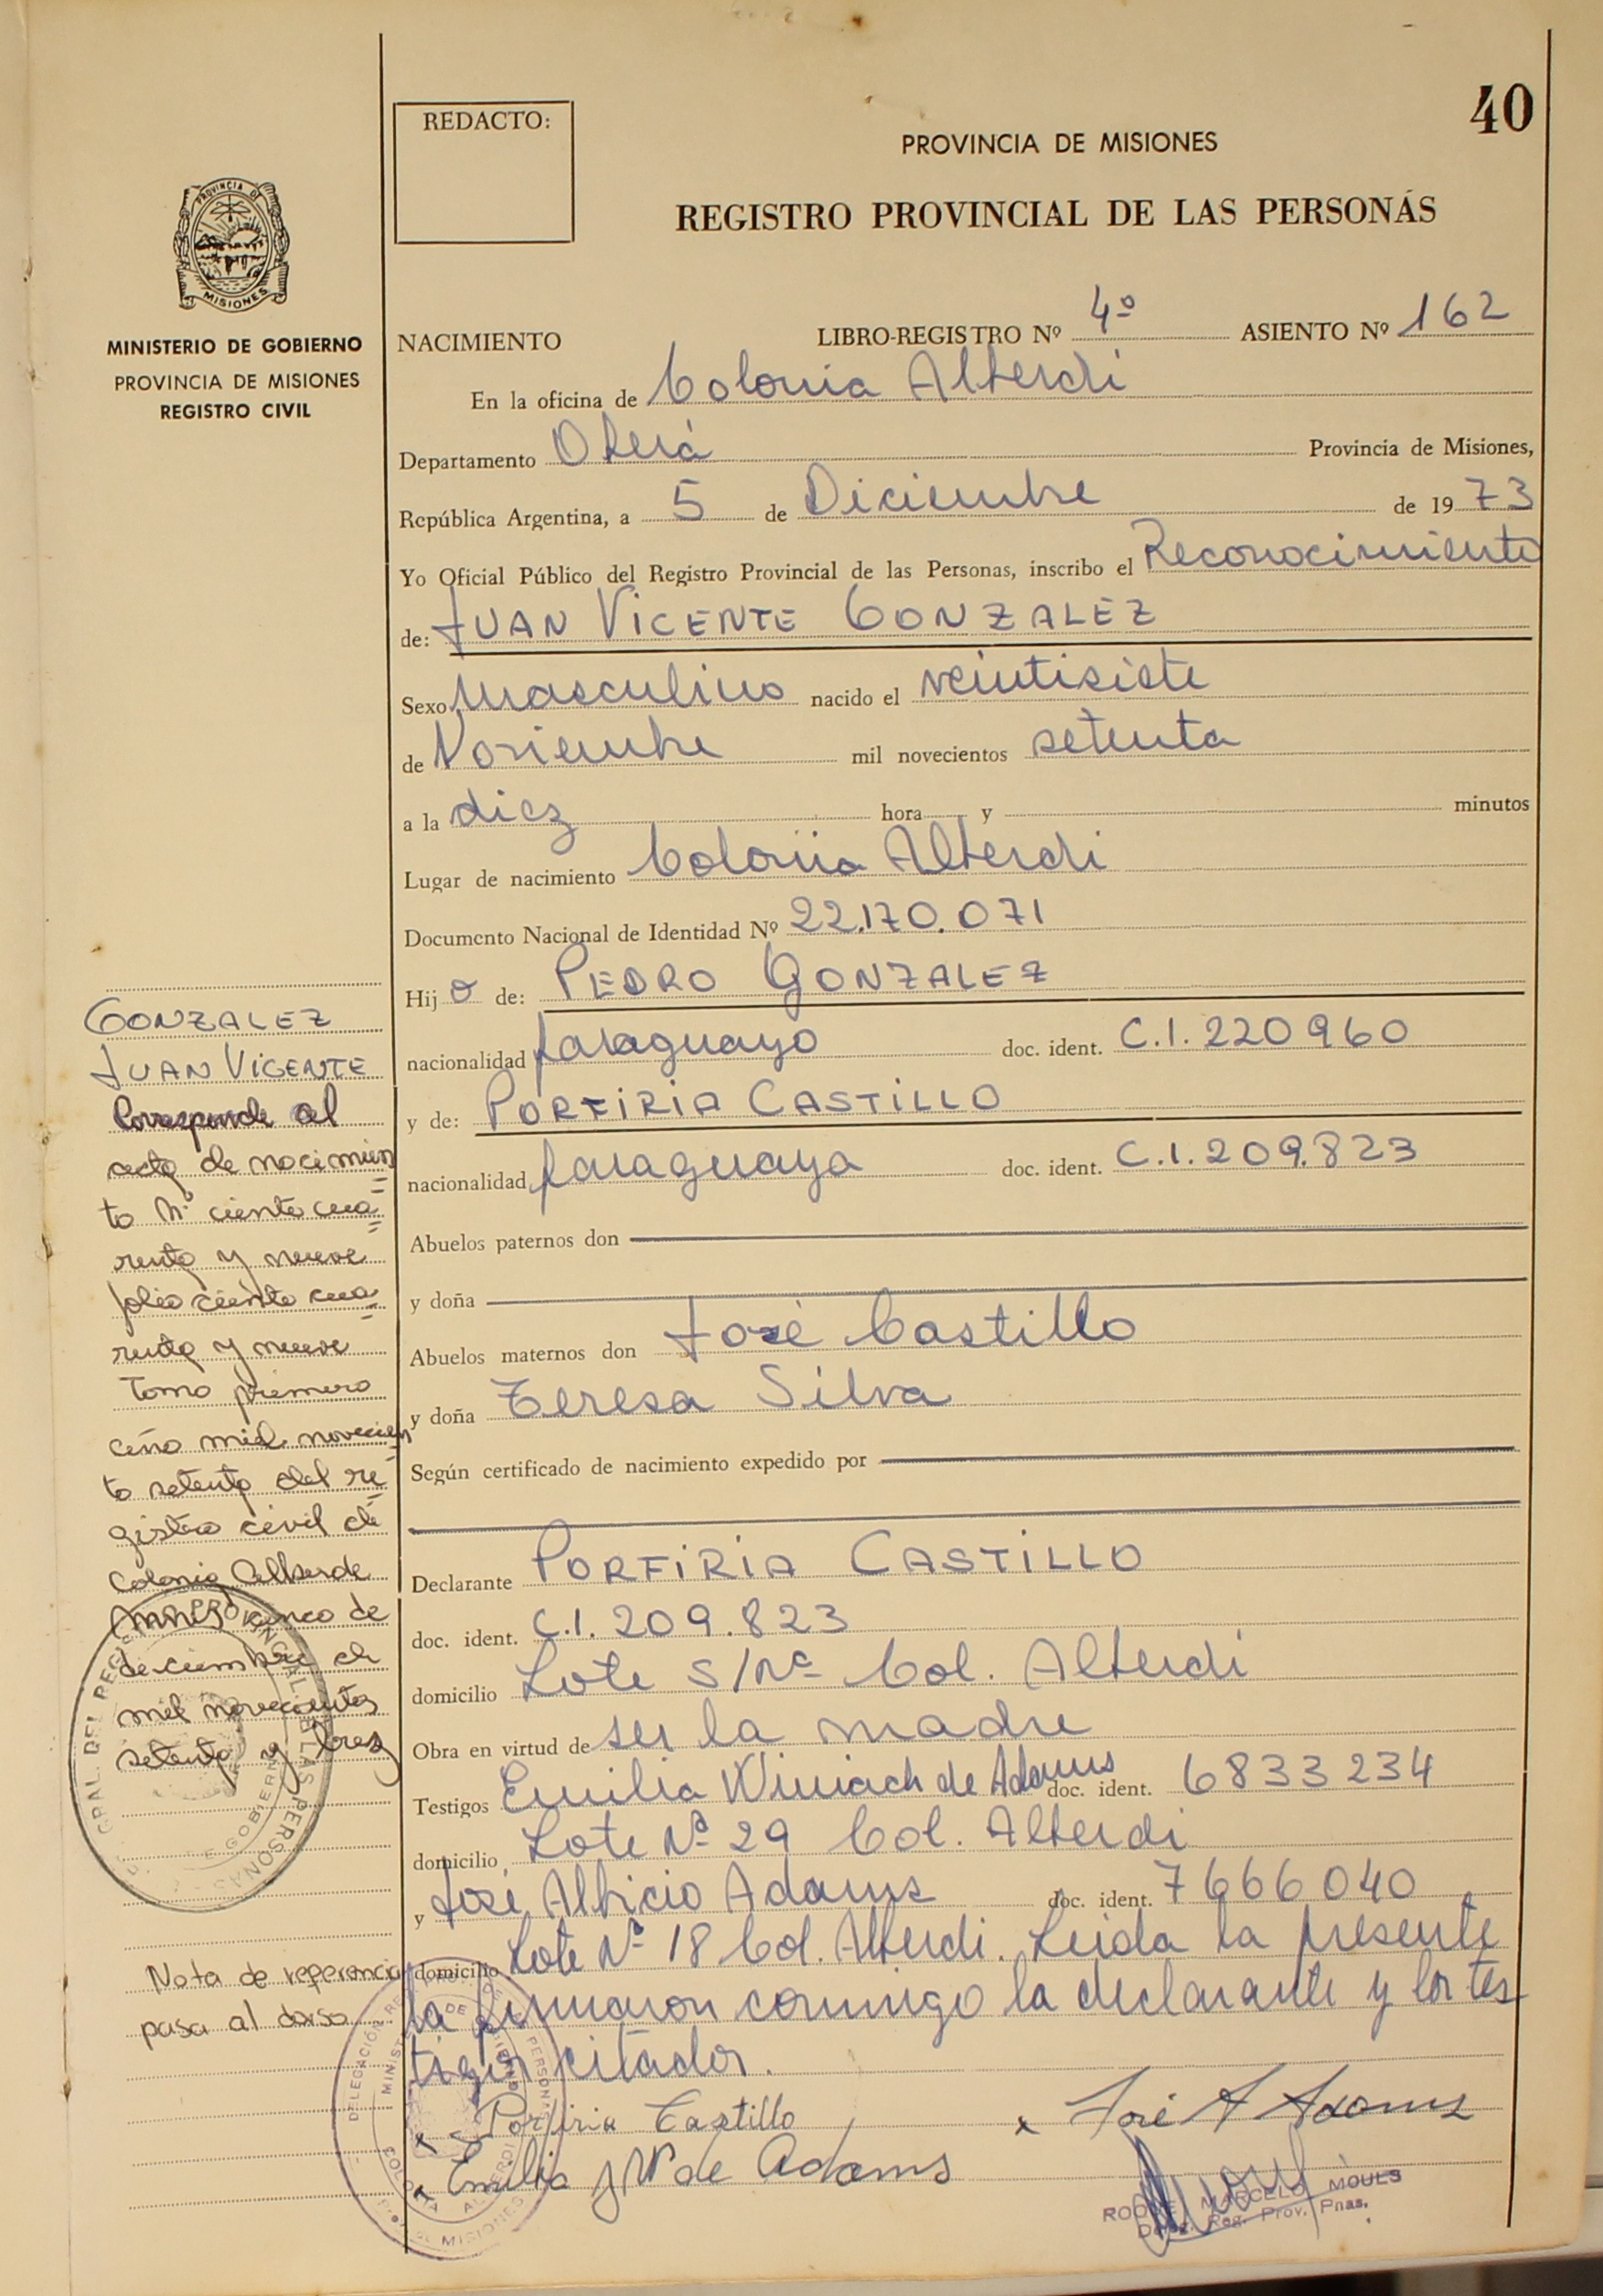 40
REDACTO:
PROVINCIA DE MISIONES
REGISTRO PROVINCIAL DE LAS PERSONAS
PROVINCIA DE
MISIONES
MINISTERIO DE GOBIERNO
PROVINCIA DE MISIONES
REGISTRO CIVIL
NACIMIENTO LIBRO-REGISTRO Nº 4º ASIENTO Nº 162
En la oficina de Colonia Alberdi
Departamento Oberá Provincia de Misiones,
República Argentina, a 5 de Diciembre de 1973
Yo Oficial Público del Registro Provincial de las Personas, inscribo el Reconocimiento
de: JUAN VICENTE GONZALEZ
Sexo masculino nacido el veintisiete
de Noviembre mil novecientos setenta
a la diez hora y minutos
Lugar de nacimiento Colonia Alberdi
Documento Nacional de Identidad Nº 22.170.071
Hijo de: PEDRO GONZALEZ
nacionalidad paraguayo doc. ident. C.I. 220960
y de: PORFIRIA CASTILLO
nacionalidad paraguaya doc. ident. C.I. 209.823
Abuelos paternos don
y doña
Abuelos maternos don José Castillo
y doña Teresa Silva
Según certificado de nacimiento expedido por
Declarante PORFIRIA CASTILLO
doc. ident. C.I. 209.823
domicilio Lote S/Nº Col. Alberdi
Obra en virtud de ser la madre
Testigos Emilia Winiach de Adams doc. ident. 6833234
domicilio Lote Nº 29 Col. Alberdi
y José Albicio Adams doc. ident. 7666040
domicilio Lote Nº 18 Col. Alberdi. Leida la presente
la firmaron conmigo la declarante y los tes
tigos citados.
Porfiria Castillo
x José A Adams
Emilia W de Adams
ROQUE MARCELO MOULS
Deleg. Reg. Prov. Pnas.
GONZALEZ
JUAN VICENTE
Corresponde al
acta de nacimien
to Nº ciento cua=
renta y nueve
folio ciento cua=
renta y nueve
Tomo primero
año mil novecien
to setenta del re=
gistro civil de
Colonia Alberde
Mnes cinco de
deciembre de
mil novecientos
setenta y tres
GRAL. DEL REGISTRO PROVINCIAL DE LAS PERSONAS
DE GOBIERNO
Nota de referencia
pasa al dorso
DELEGACIÓN REG. PROV. DE LAS PERSONAS
MINIST. DE GOBIERNO
COLONIA ALBERDI
MISIONES